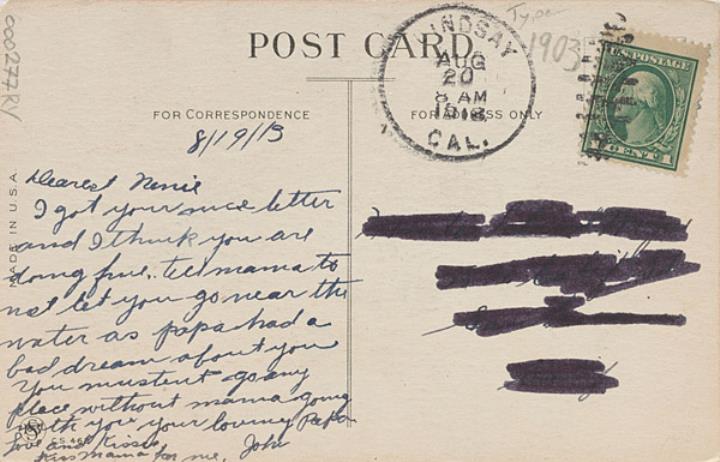 000277RV
POST CARD
Type
1903
LINDSAY
AUG
20
8 AM
1913
CAL.
U.S. POSTAGE
CENT 1
FOR CORRESPONDENCE
FOR ADDRESS ONLY
8/19/13
MADE IN U.S.A.
Dearest Nenie
I got your nice letter
and I think you are
doing fine. tell mama to
not let you go near the
water as papa had a
bad dream about you
You mustent go any
place without mama going
with you your loving Papa
Love and kisses John
kiss mama for me.
CS 46